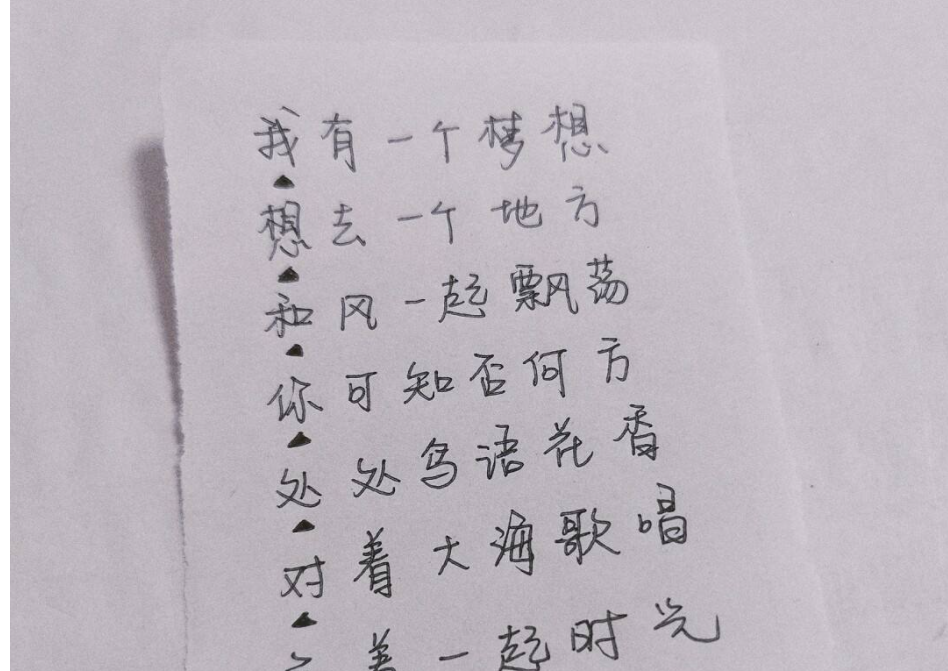 我有一个梦想
想去一个地方
和风一起飘荡
你可知否何方
处处鸟语花香
对着大海歌唱
一起时光